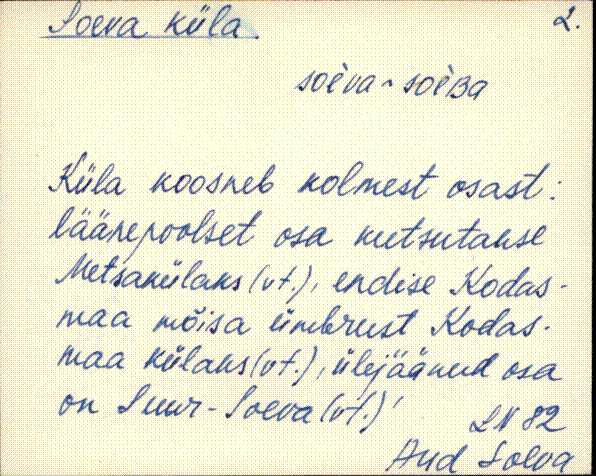 Soeva küla. 2.
soèva ~ soèʙa
Küla koosneb kolmest osast:
läänepoolset osa kutsutakse
Metsakülaks (vt.), endise Kodas-
maa mõisa ümbrust Kodas-
maa külaks (vt.), ülejäänud osa
on Suur-Soeva (vt.)!
LN 82
And Solva